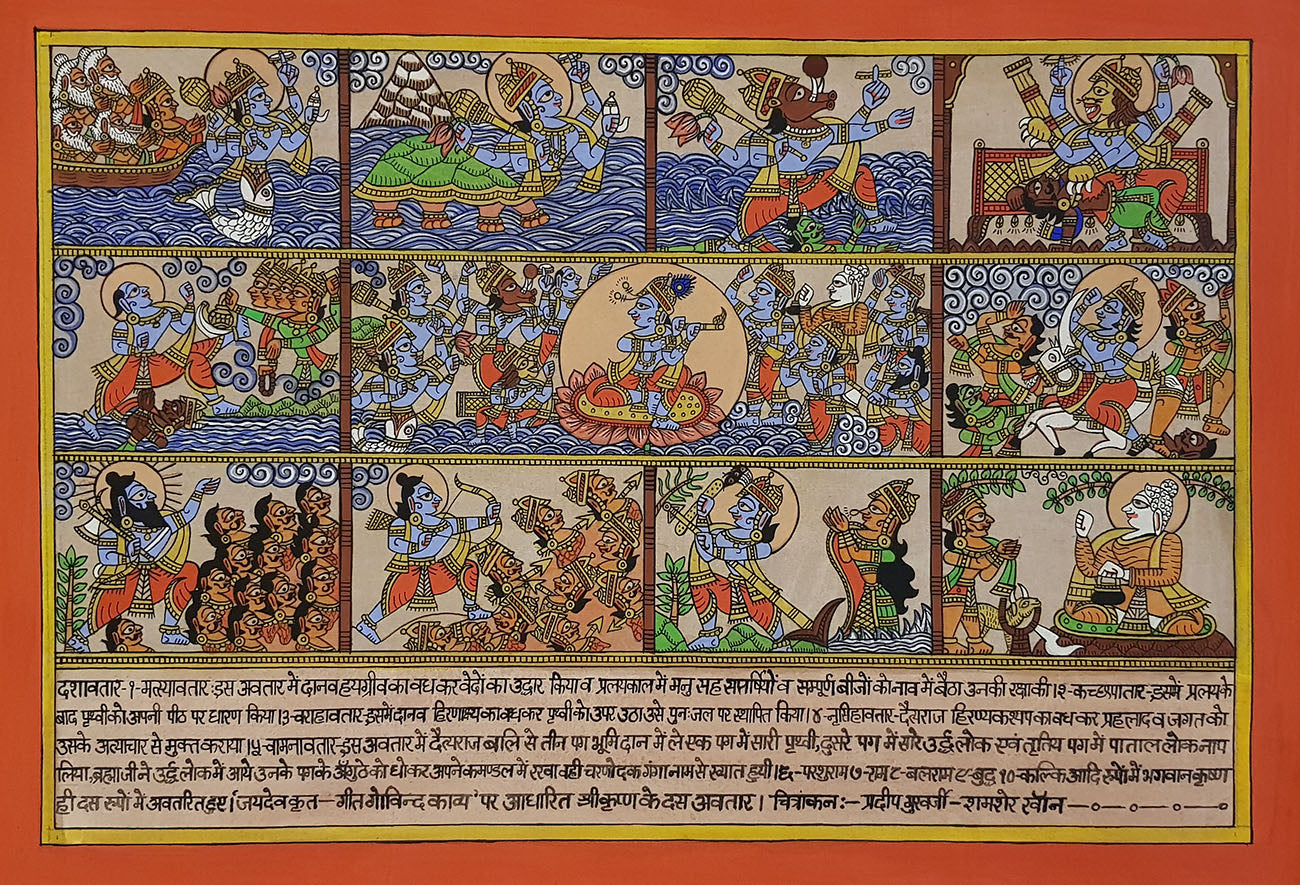 दशावतार-१-मत्स्यावतार:इस अवतार में दानव हयग्रीव का वध कर वेदों का उद्वार किया व प्रलयकाल में मनु सह सप्तर्षियों व सम्पूर्ण बीजों को नाव में बैठा उनकी रक्षा की।२-कच्छपातार-इसमें प्रलय के
बाद पृथ्वी को अपनी पीठ पर धारण किया।३-वराहावतार-इसमें दानव हिरणाक्ष्य का बध कर पृथ्वी को उपर उठा उसे पुनः जल पर स्थापित किया।४-नृसिंहावतार-दैत्यराज हिरण्यकश्यप का वध कर प्रहलाद व जगत को
उसके अत्याचार से मुक्त कराया।५-वामनावतार-इस अवतार में दैत्यराज बलि से तीन पग भूमि दान में ले एक पग में सारी पृथ्वी, दुसरे पग में सारे उर्द्व लोक एवं तृतिय पग में पाताल लोक नाप
लिया, ब्रह्माजी ने उर्द्व लोक में आये उनके पग के अँगुठे को धोकर अपने कमण्डल में रखा वही चरणौदक गंगा नाम से ख्यात हुयी।६-परशुराम ७-राम ८-बलराम ९-बुद्व १०-कल्कि आदि रुपों में भगवान कृष्ण
ही दस रुपों में अवतरित हुए। जयदेव कृत-गीत गोविन्द काव्य' पर आधारित श्री कृष्ण के दस अवतार। चित्रांकन:- प्रदीप मुखर्जी-शमशेर खाँन